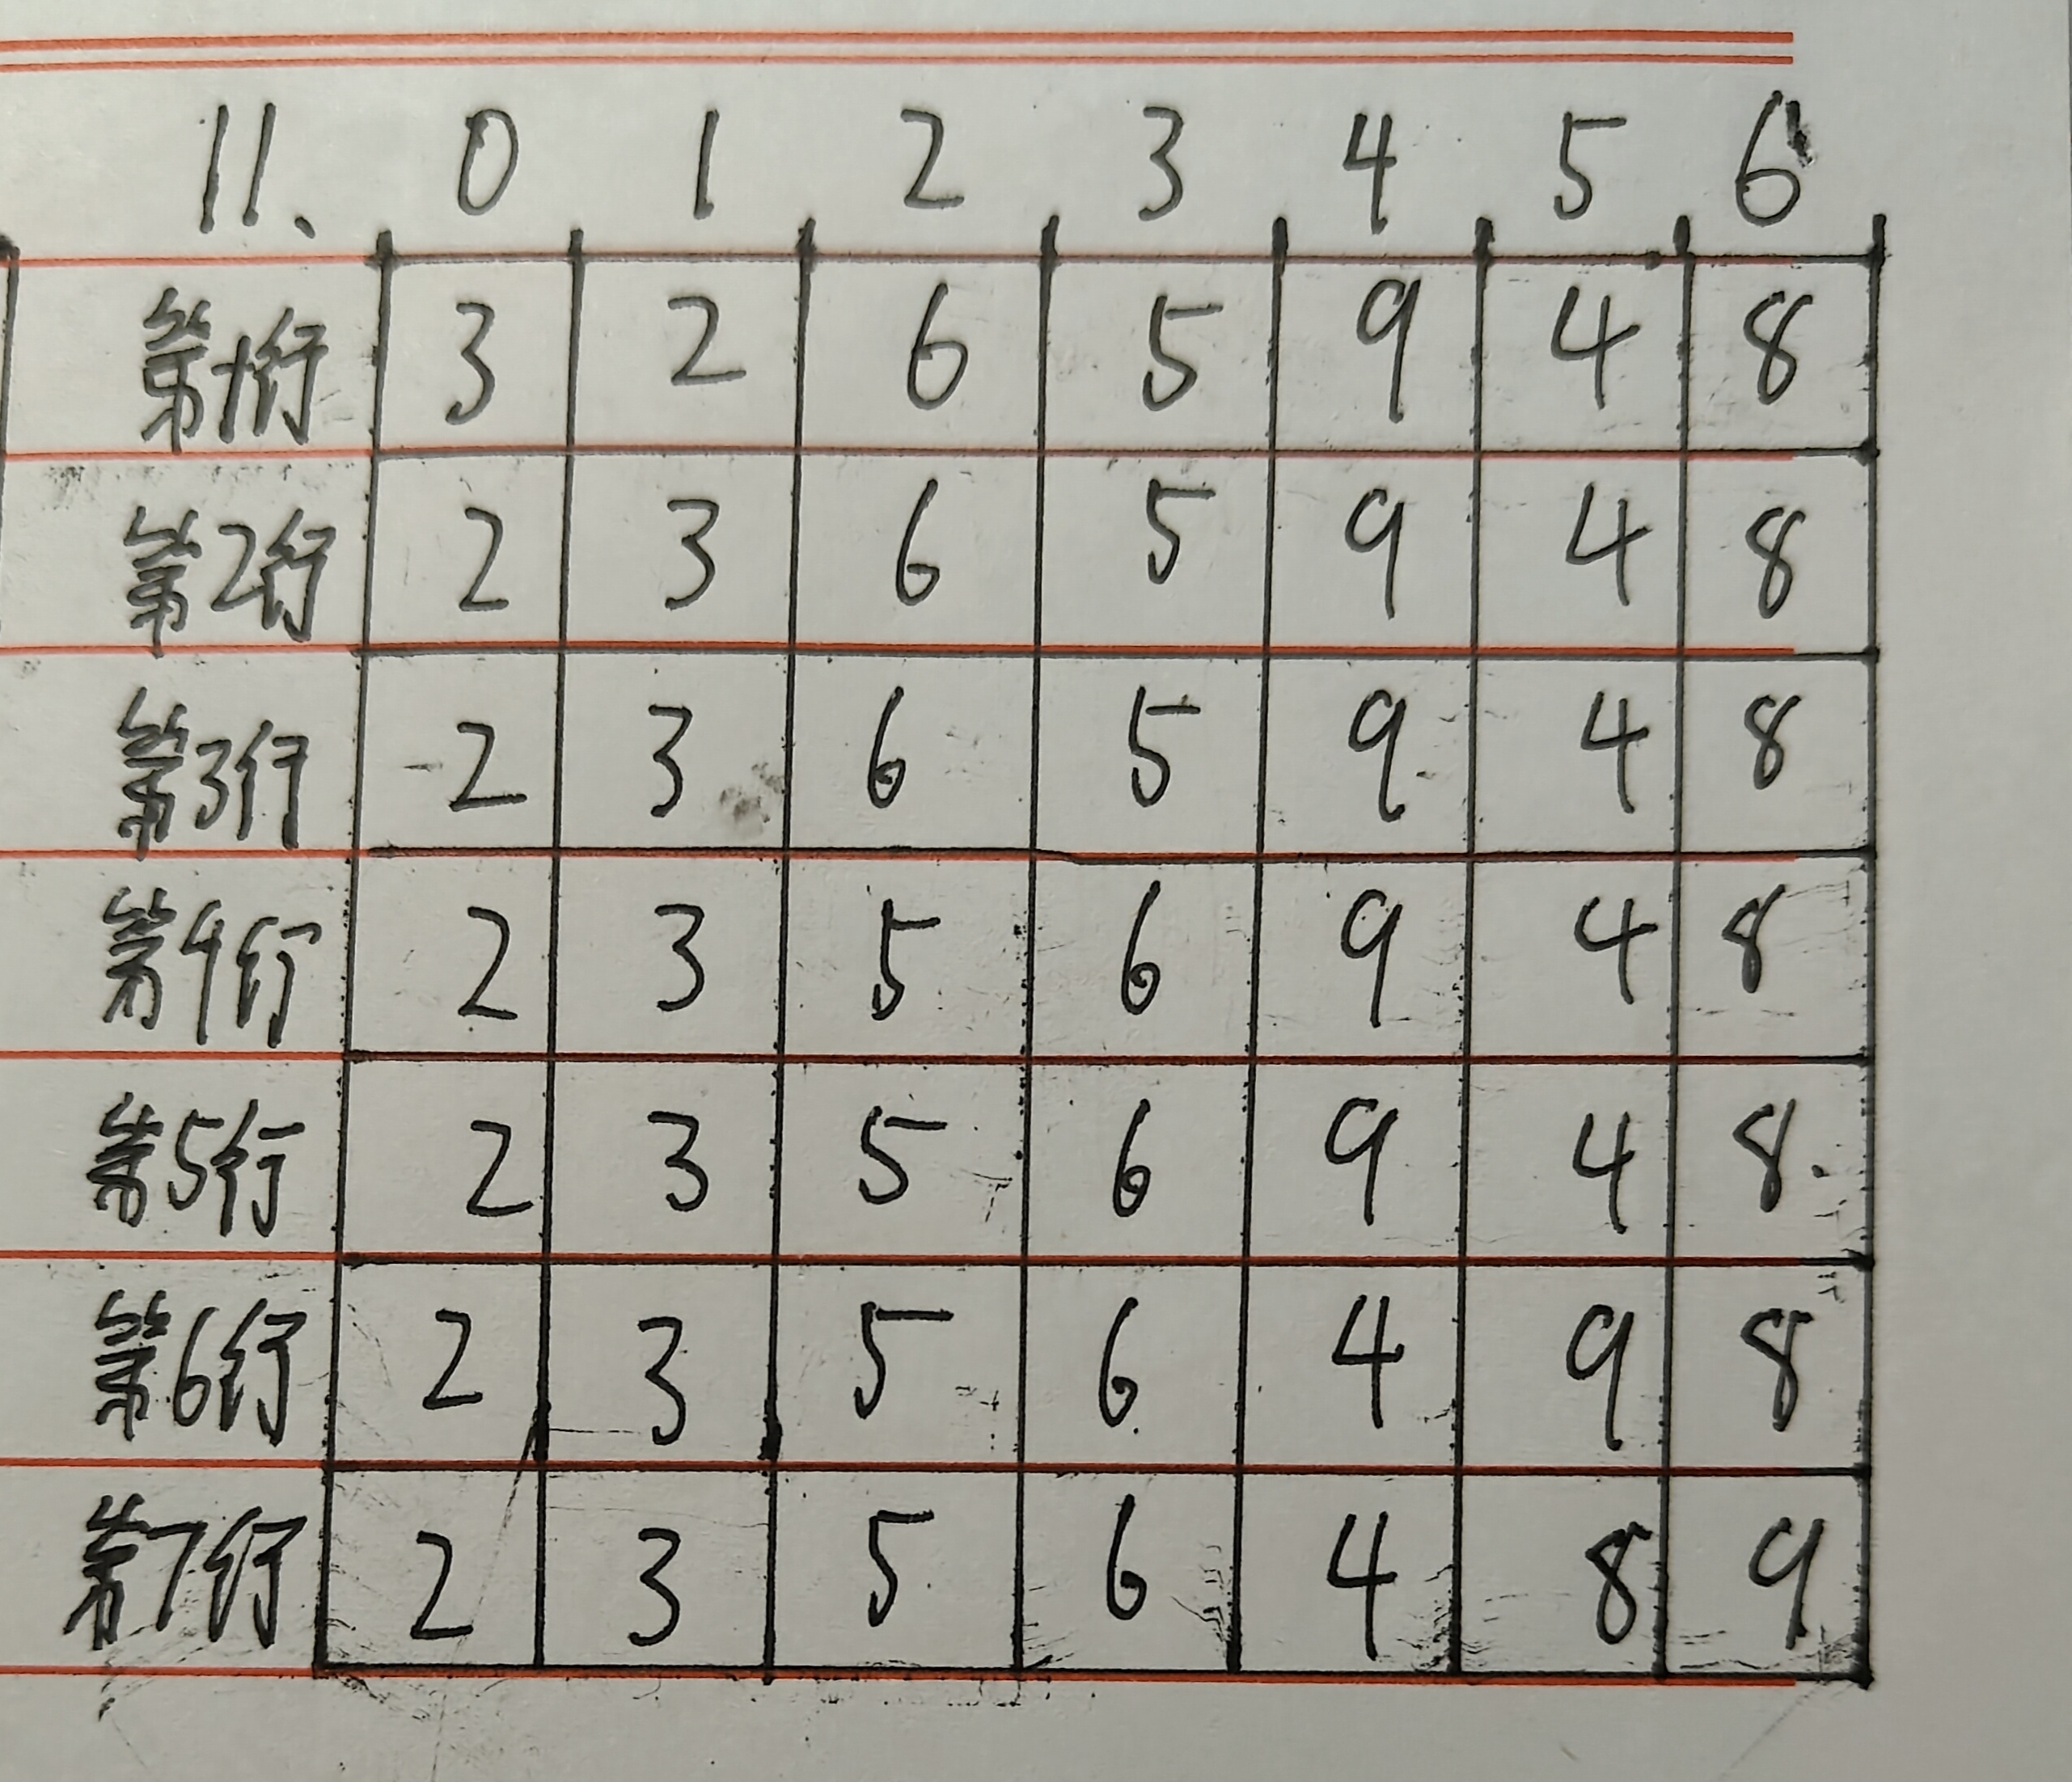 11、 0 1 2 3 4 5 6
第1行 3 2 6 5 9 4 8
第2行 2 3 6 5 9 4 8
第3行 2 3 6 5 9 4 8
第4行 2 3 5 6 9 4 8
第5行 2 3 5 6 9 4 8
第6行 2 3 5 6 4 9 8
第7行 2 3 5 6 4 8 9